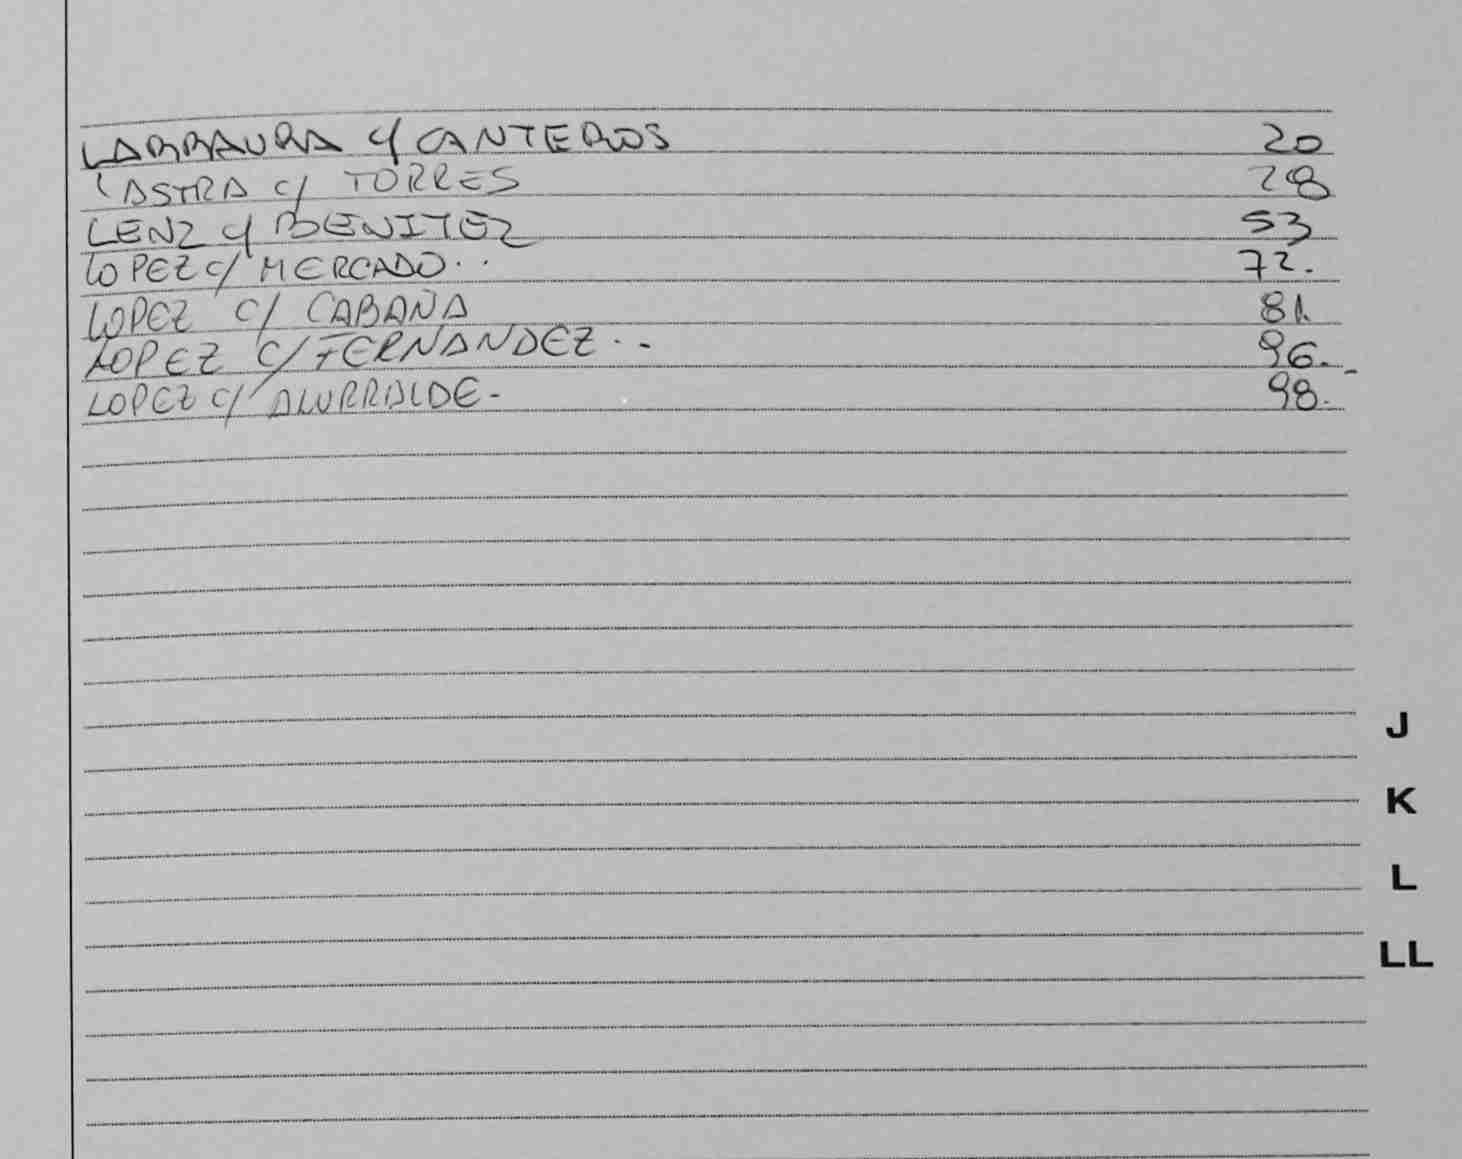 LARRAURA c/ CANTEROS 20
LASTRA c/ TORRES 28
LENZ c/ BENITEZ 53
LOPEZ c/ MERCADO.. 72.
LOPEZ c/ CABAÑA 81.
LOPEZ c/ FERNANDEZ.. 96.-
LOPEZ c/ ALURRALDE- 98.
J
K
L
LL